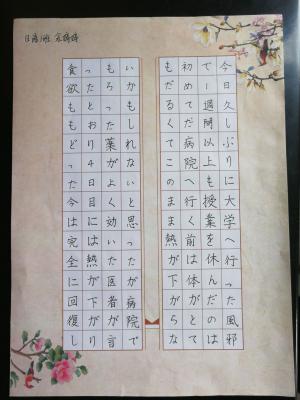 今日久しぶりに大学へ行った風邪
で一週間以上も授業を休んだのは
初めてだ病院へ行く前は体がとて
もだるくてこのまま熱が下がらな
いかもしれないと思ったが病院で
もらった薬がよく効いた医者が言
ったとおり4日目には熱が下がり
食欲ももどった今は完全に回復し